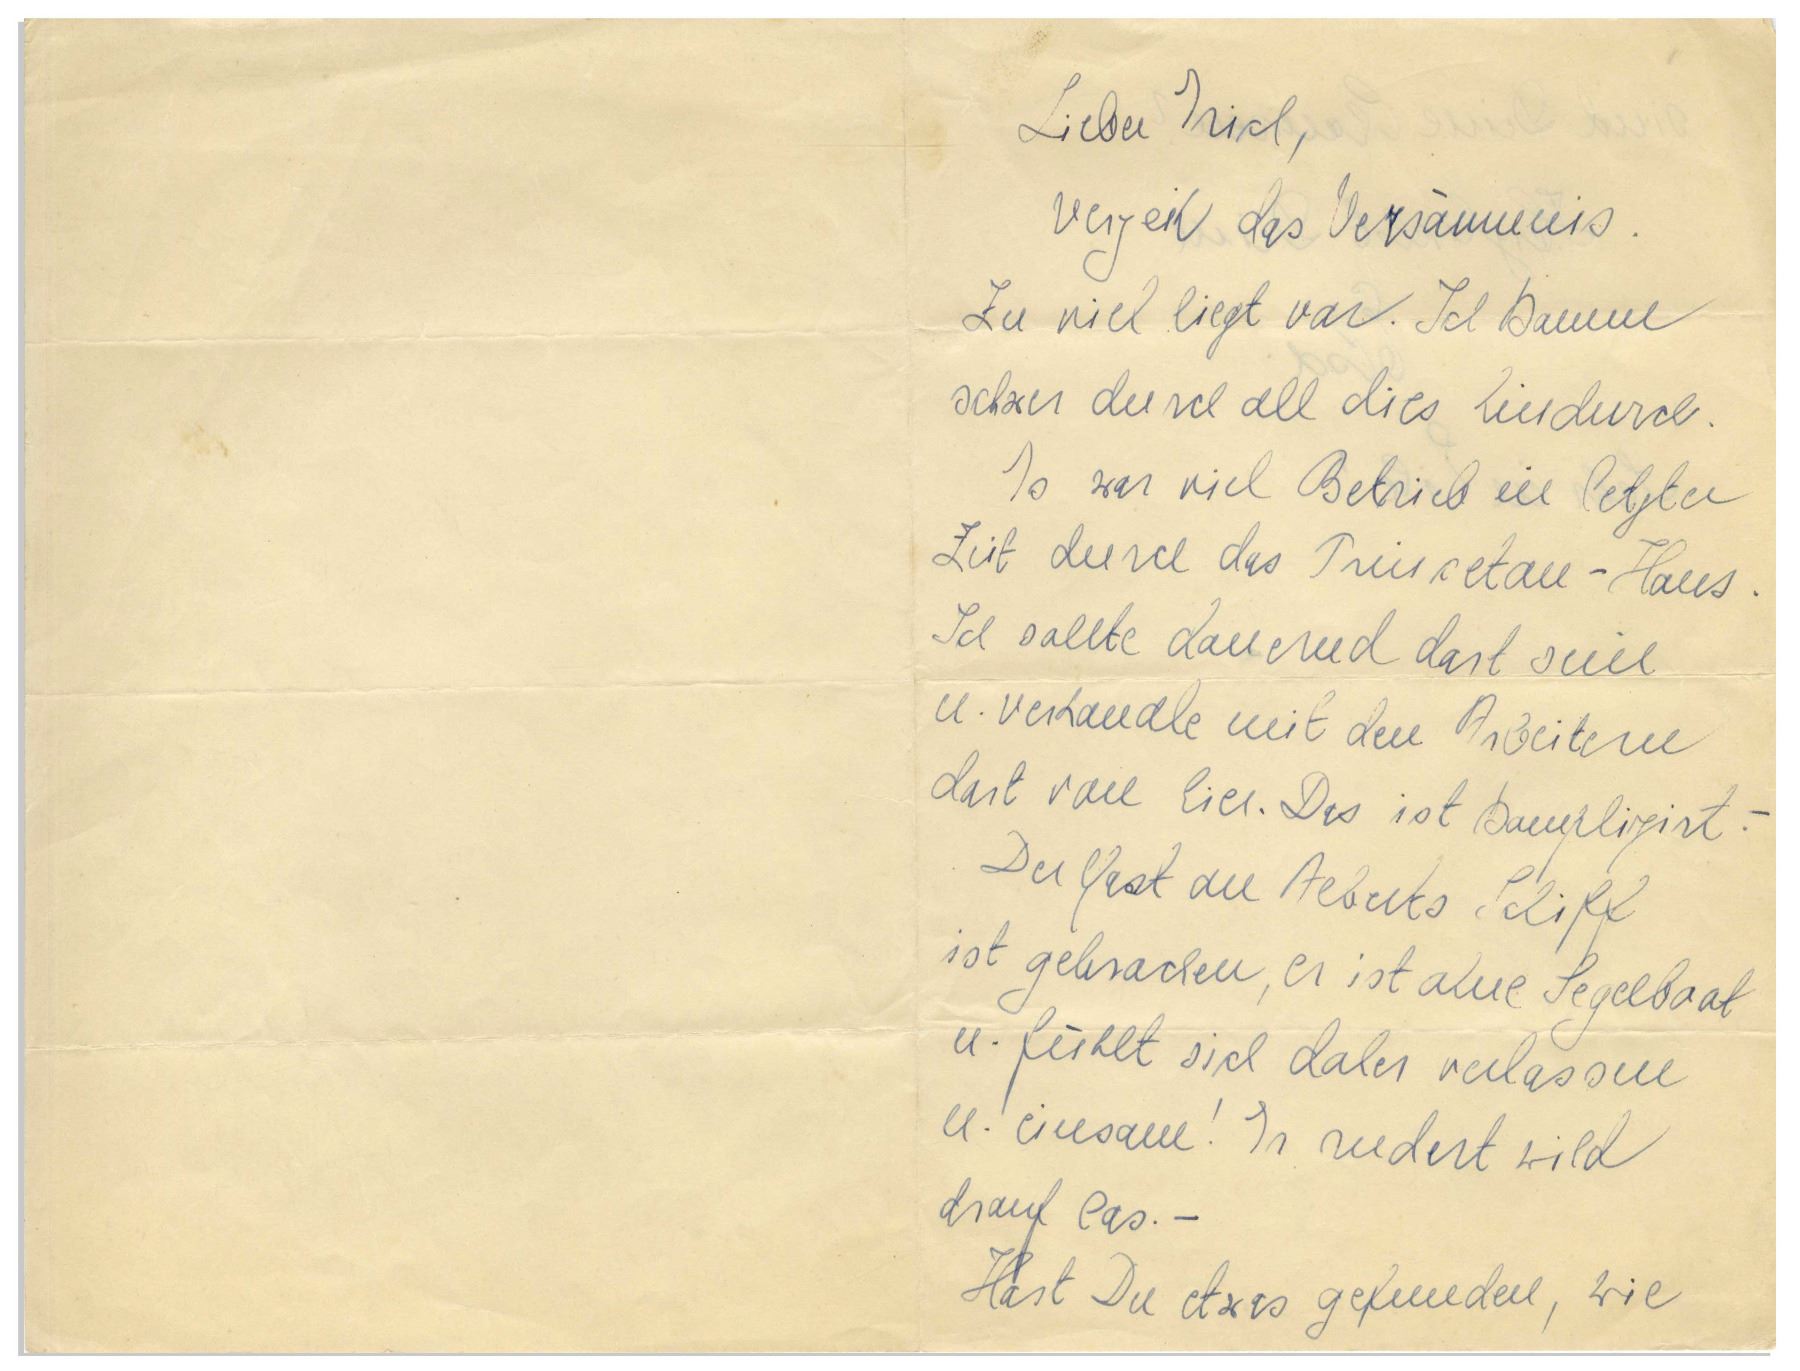 Lieber Erich,
verzeih das Versäumnis.
Zu viel liegt vor. Ich komme
schwer durch all dies hindurch.
Es war viel Betrieb in letzter
Zeit durch das Princeton-Haus.
Ich sollte dauernd dort sein
u. verhandle mit den Arbeitern
dort von hier. Das ist kompliziert.-
Der Mast an Alberts Schiff
ist gebrochen, er ist ohne Segelboot
u. fühlt sich daher verlassen
u. einsam! Er rudert wild
drauf los.-
Hast Du etwas gefunden, wie